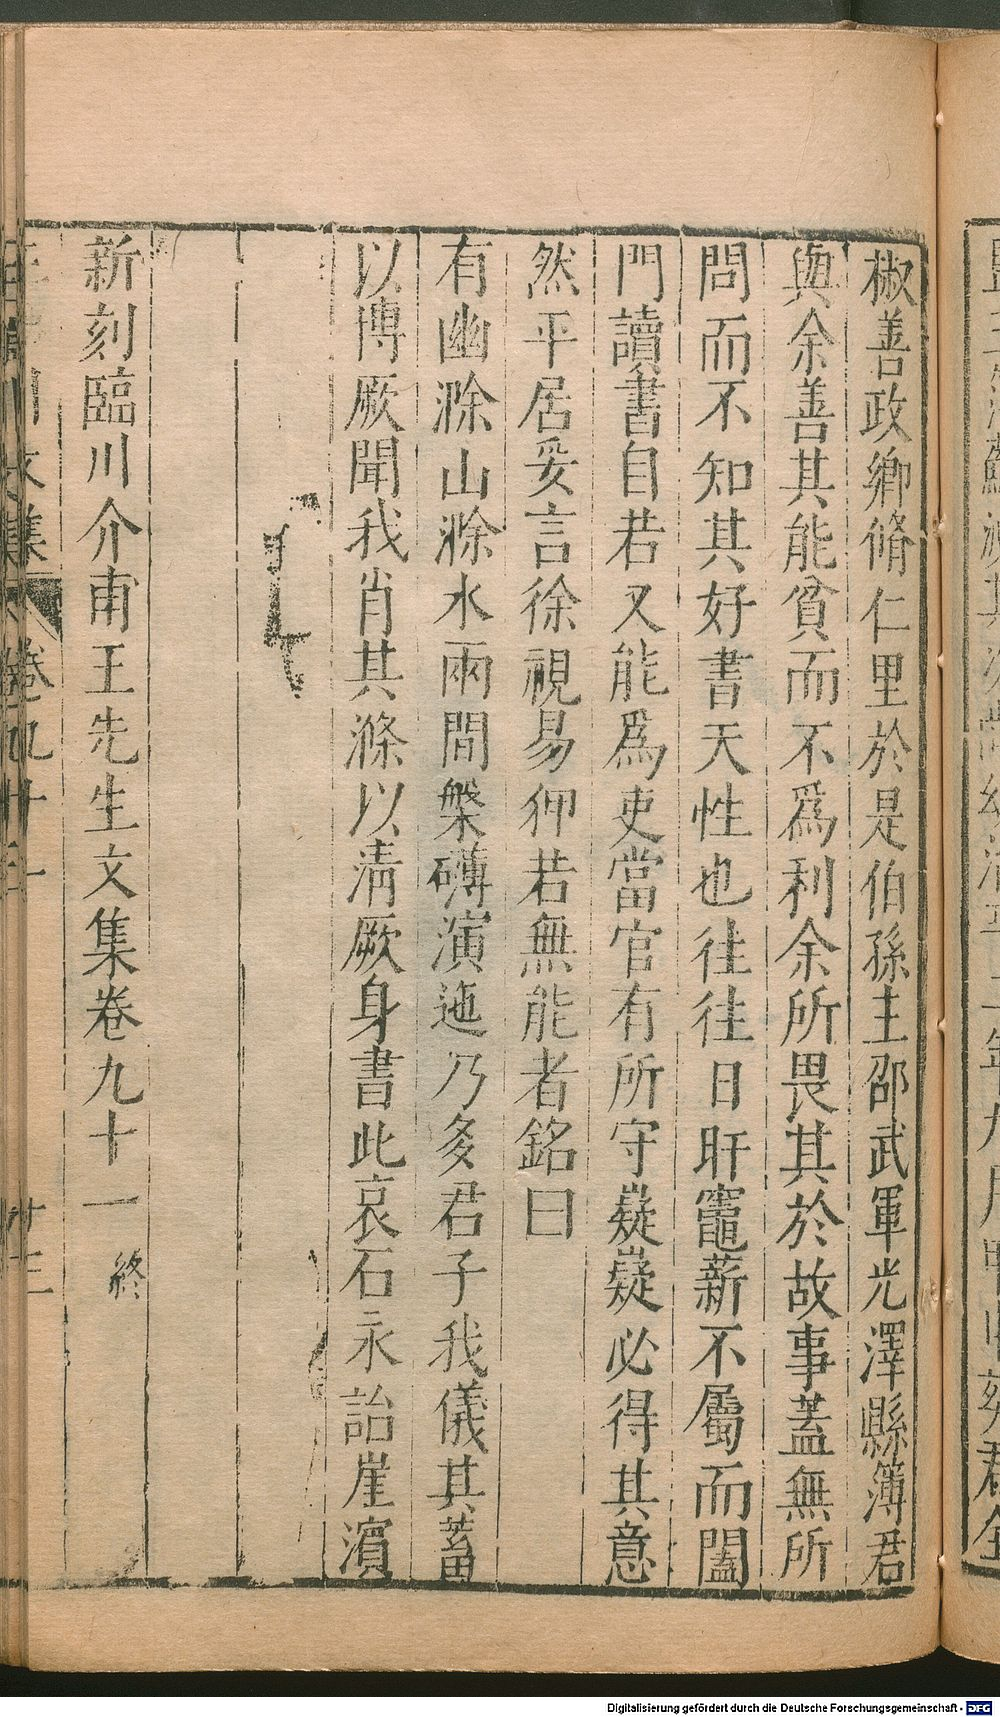 椒善政鄉脩仁里於是伯孫主邵武軍光澤縣簿君
與余善其能貧而不爲利余所畏其於故事蓋無所
問而不知其好書天性也往往日旰竈薪不屬而闔
門讀書自若又能爲吏當官有所守嶷嶷必得其意
然平居妥言徐視易狎若無能者銘曰
有幽滁山滁水兩間槃礴演迤乃多君子我儀其蓄
以博厥聞我肖其滌以淸厥身書此哀石永詒崖濱
新刻臨川介甫王先生文集卷九十一 終
卷九十一
廿三
Digitalisierung gefördert durch die Deutsche Forschungsgemeinschaft - DFG